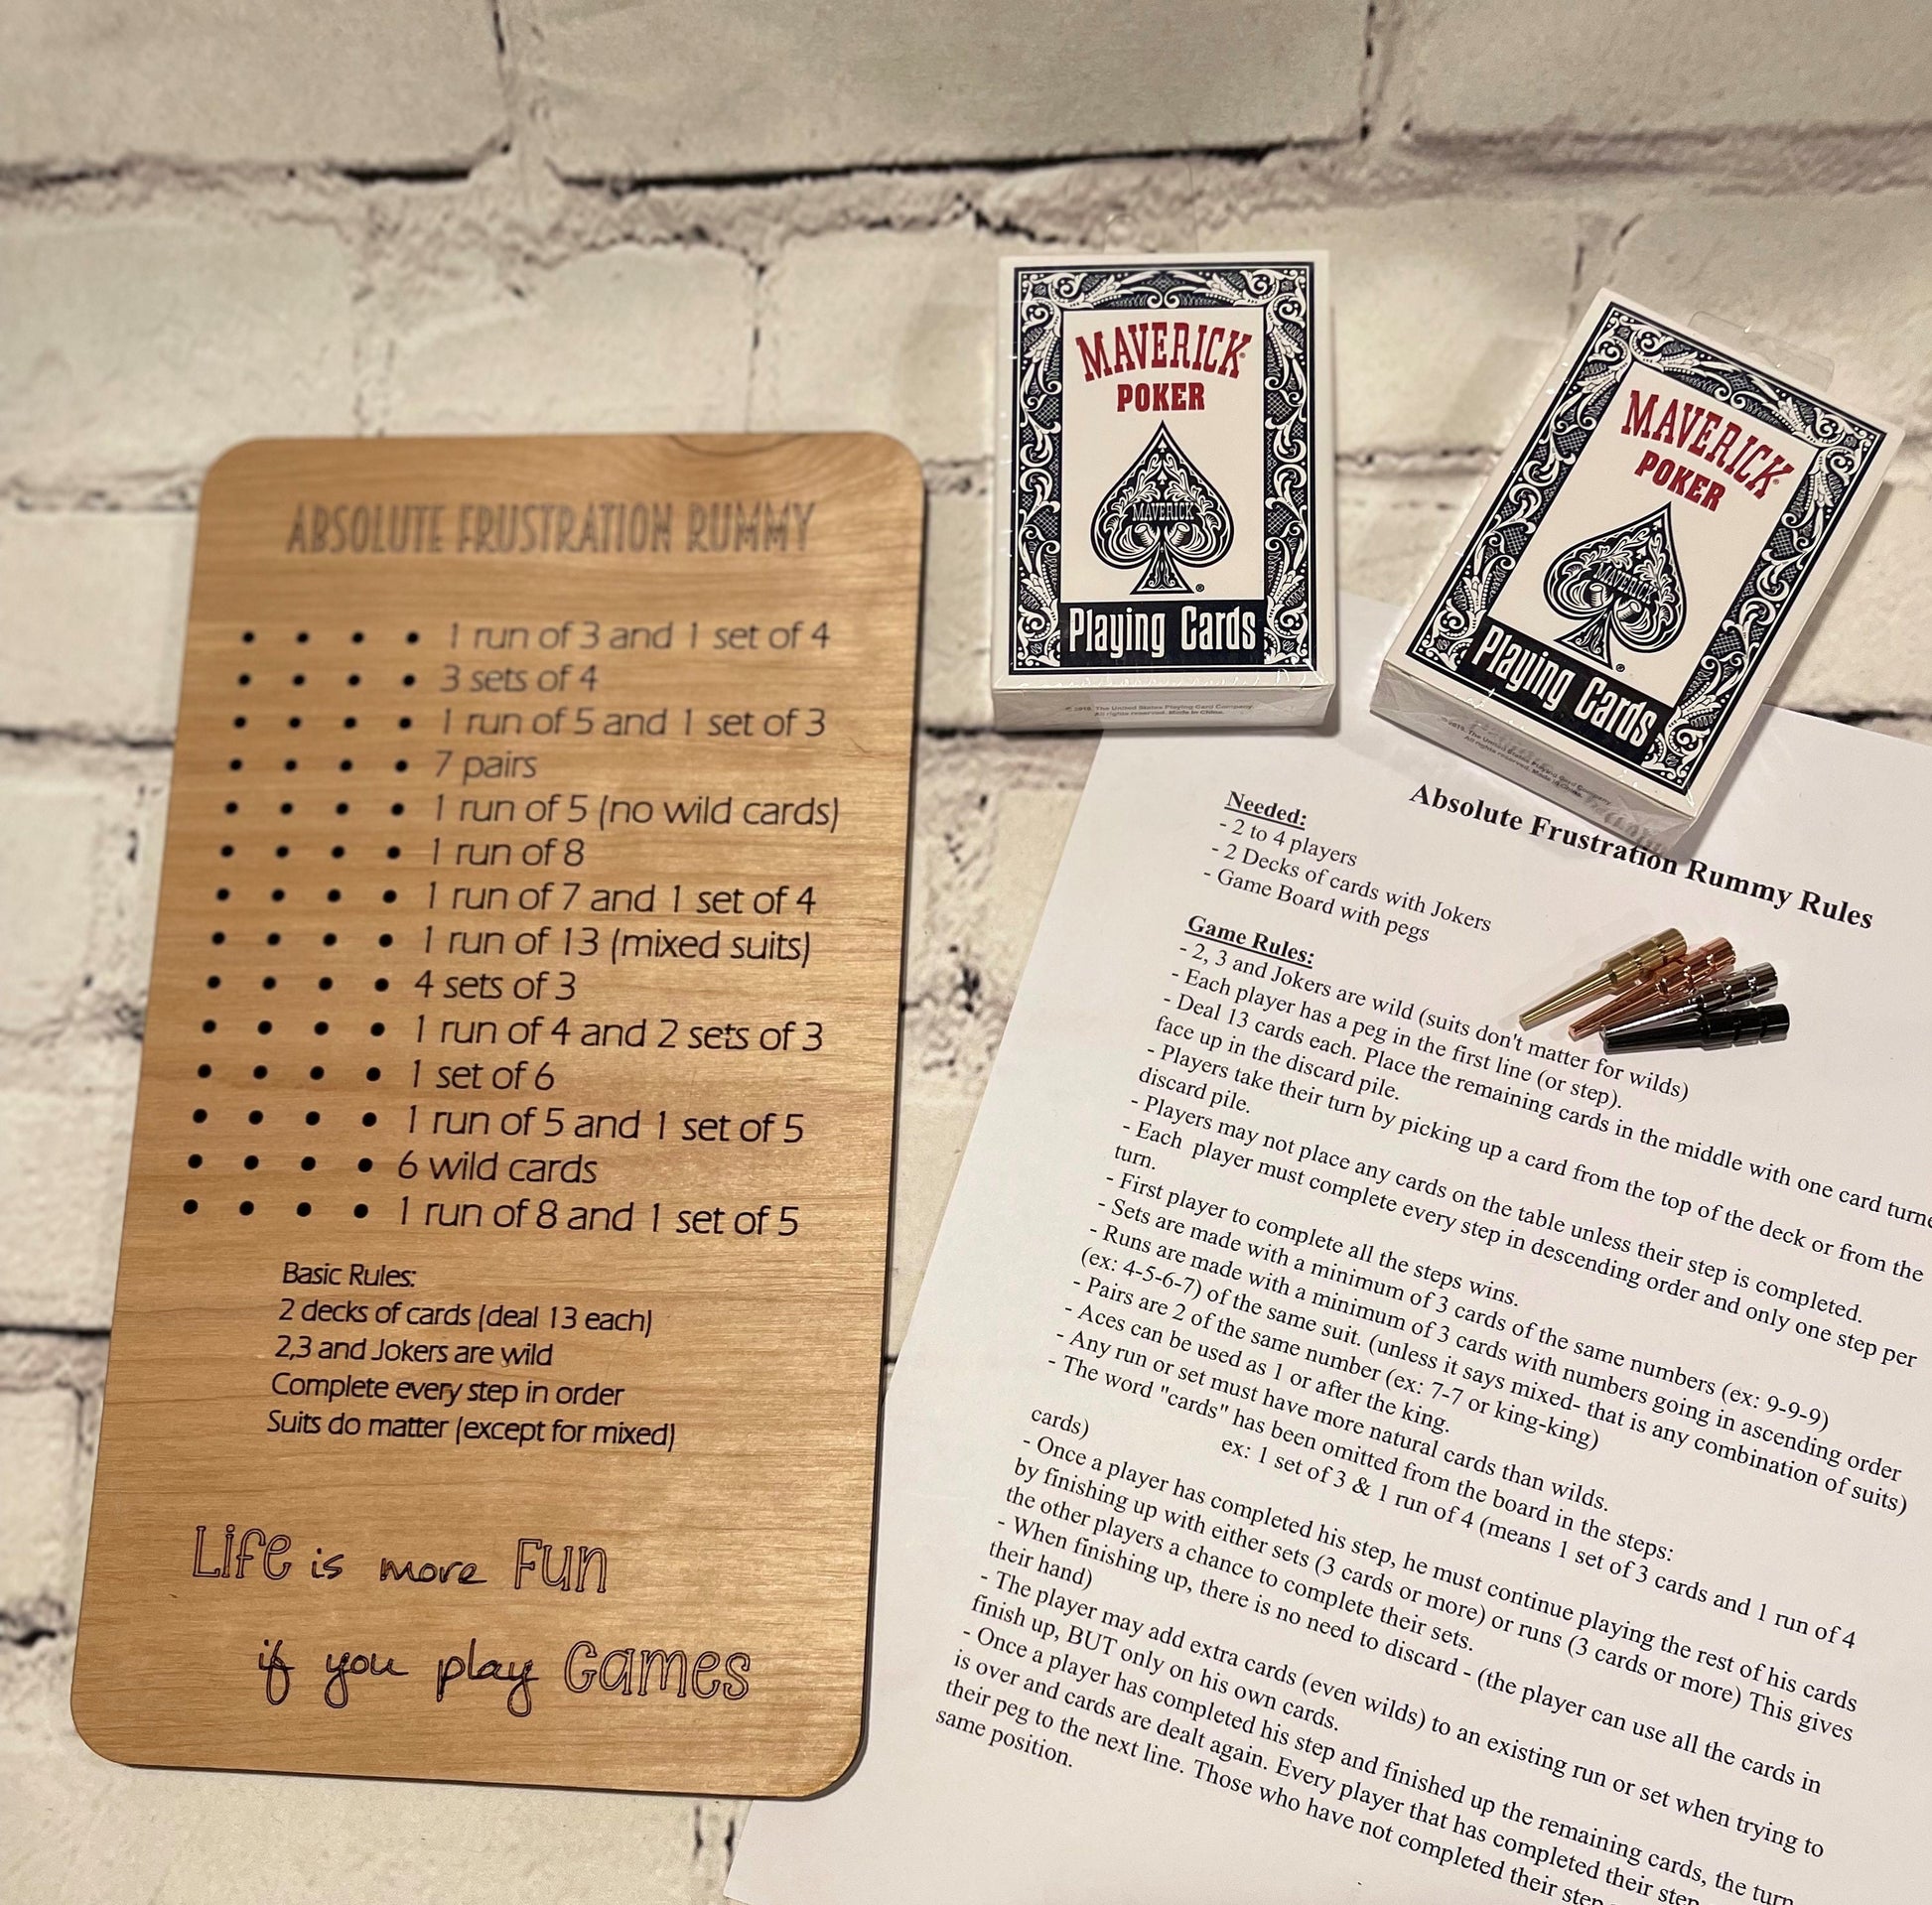 ABSOLUTE FRUSTRATION RUMMY
1 run of 3 and 1 set of 4
3 sets of 4
1 run of 5 and 1 set of 3
7 pairs
1 run of 5 (no wild cards)
1 run of 8
1 run of 7 and 1 set of 4
1 run of 13 (mixed suits)
4 sets of 3
1 run of 4 and 2 sets of 3
1 set of 6
1 run of 5 and 1 set of 5
6 wild cards
1 run of 8 and 1 set of 5
Basic Rules:
2 decks of cards (deal 13 each)
2,3 and Jokers are wild
Complete every step in order
Suits do matter (except for mixed)
Life is more Fun
if you play Games
MAVERICK
POKER
MAVERICK
Playing Cards
The United States Playing Card Company
All rights reserved. Made in China.
MAVERICK
POKER
MAVERICK
Playing Cards
The United States Playing Card Company
All rights reserved. Made in China.
Absolute Frustration Rummy Rules
Needed:
- 2 to 4 players
- 2 Decks of cards with Jokers
- Game Board with pegs
Game Rules:
- 2, 3 and Jokers are wild (suits don't matter for wilds)
- Each player has a peg in the first line (or step).
- Deal 13 cards each. Place the remaining cards in the middle with one card turne
face up in the discard pile.
- Players take their turn by picking up a card from the top of the deck or from the
discard pile.
- Players may not place any cards on the table unless their step is completed.
- Each player must complete every step in descending order and only one step per
turn.
- First player to complete all the steps wins.
- Sets are made with a minimum of 3 cards of the same numbers (ex: 9-9-9)
- Runs are made with a minimum of 3 cards with numbers going in ascending order
(ex: 4-5-6-7) of the same suit. (unless it says mixed- that is any combination of suits)
- Pairs are 2 of the same number (ex: 7-7 or king-king)
- Aces can be used as 1 or after the king.
- Any run or set must have more natural cards than wilds.
- The word "cards" has been omitted from the board in the steps:
ex: 1 set of 3 & 1 run of 4 (means 1 set of 3 cards and 1 run of 4
cards)
- Once a player has completed his step, he must continue playing the rest of his cards
by finishing up with either sets (3 cards or more) or runs (3 cards or more) This gives
the other players a chance to complete their sets.
- When finishing up, there is no need to discard - (the player can use all the cards in
their hand)
- The player may add extra cards (even wilds) to an existing run or set when trying to
finish up, BUT only on his own cards.
- Once a player has completed his step and finished up the remaining cards, the turn
is over and cards are dealt again. Every player that has completed their step
their peg to the next line. Those who have not completed their step
same position.